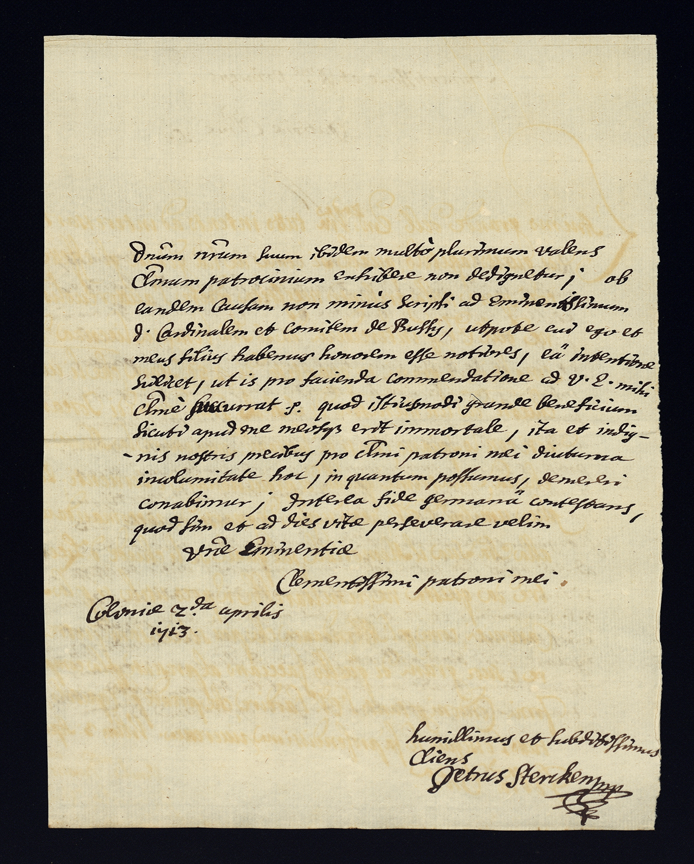 dnūm nrūm suum ibidem multò plurimum valens
Clmum patrocinium exhibere non dedignetur; ob
eandem causam non minus scripsi ad Eminentissimum
d. Cardinalem et Comitem de Bussy, utpote cui ego et
meus filius habemus honorem esse notiores, eâ intentione
scilicet, ut is pro facienda commendatione ad V. E. mihi
clmè succurrat p. quod istiusmodi grande beneficium
sicuti apud me meosq; erit immortale, ita et indig-
-nis nostris precibus pro clmi patroni mei diuturna
incolumitate hoc, in quantum possumus, demereri
conabimur; Interea fide germanâ contestans,
quod sim et ad dies vitæ perseverare velim
Vrae Eminentiæ
Clementissimi patroni mei.
Coloniæ 2.da aprilis
1713.
humillimus et subditissimus
Cliens
Petrus Stercken mp